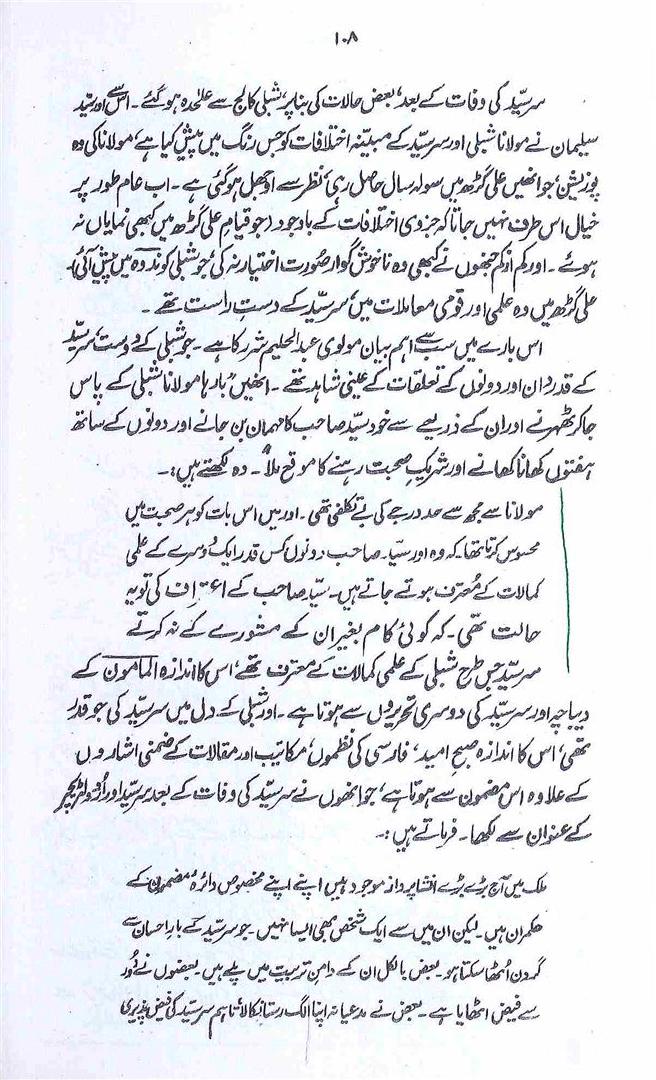 ۱۰۸
سر سیّد کی وفات کے بعد، بعض حالات کی بنا پر، شبلی کالج سے علٰحدہ ہو گئے ۔ اس سے اور سیّد
سلیمان نے مولانا شبلی اور سرسیّد کے مبیّنہ اختلافات کو جس رنگ میں پیش کیا ہے، مولانا کی وہ
پوزیشن، جو انھیں علی گڑھ میں سولہ سال حاصل رہی، نظر سے اوجھل ہو گئی ہے ۔ اب عام طور پر
خیال اس طرف نہیں جاتا کہ جزوی اختلافات کے باوجود (جو قیامِ علی گڑھ میں کبھی نمایاں نہ
ہوئے ۔ اور کم از کم جنھوں نے کبھی وہ ناخوش گوار صورت اختیار نہ کی، جو شبلی کو ندوہ میں پیش آئی)،
علی گڑھ میں وہ علمی اور قومی معاملات میں، سر سیّد کے دستِ راست تھے ۔
اس بارے میں سب سے اہم بیان مولوی عبدالحلیم شرر کا ہے ۔ جو شبلی کے دوست، سر سیّد
کے قدردان اور دونوں کے تعلقات کے عینی شاہد تھے ۔ انھیں "بارہا مولانا شبلی کے پاس
جا کر ٹھہرنے اور ان کے ذریعے سے خود سیّد صاحب کا مہمان بن جانے اور دونوں کے ساتھ
ہفتوں کھانا کھانے اور شریکِ صحبت رہنے کا موقع ملا" ۔ وہ لکھتے ہیں :۔
مولانا سے مجھ سے حد درجے کی بے تکلفی تھی ۔ اور میں اس بات کو ہر صحبت میں
محسوس کرتا تھا، کہ وہ اور سیّد صاحب دونوں کس قدر ایک دُوسرے کے علمی
کمالات کے مُعترف ہوتے جاتے ہیں ۔ سیّد صاحب کے اعتراف کی تو یہ
حالت تھی ۔ کہ کوئی کام بغیر ان کے مشورے کے نہ کرتے
سر سیّد جس طرح شبلی کے علمی کمالات کے معترف تھے، اس کا اندازہ المامون کے
دیباچہ اور سر سیّد کی دوسری تحریروں سے ہوتا ہے ۔ اور شبلی کے دل میں سر سیّد کی جو قدر
تھی، اس کا اندازہ صبح امید، فارسی کی نظموں، مکاتیب اور مقالات کے ضمنی اشاروں
کے علاوہ اس مضمون سے ہوتا ہے، جو انھوں نے سر سیّد کی وفات کے بعد سر سیّد اور اُردو لٹریچر
کے عنوان سے لکھا ۔ فرماتے ہیں :۔
ملک میں آج بڑے بڑے انشا پرداز موجود ہیں اپنے اپنے مخصوص دائرۂ مضمون کے
حکمران ہیں ۔ لیکن ان میں سے ایک شخص بھی ایسا نہیں ۔ جو سر سیّد کے بارِ احسان سے
گردن اُٹھا سکتا ہو ۔ بعض بالکل ان کے دامنِ تربیت میں پلے ہیں ۔ بعضوں نے دُور
سے فیض اٹھایا ہے ۔ بعض نے مدعیانہ اپنا الگ رستا نکالا، تاہم سر سیّد کی فیض پذیری